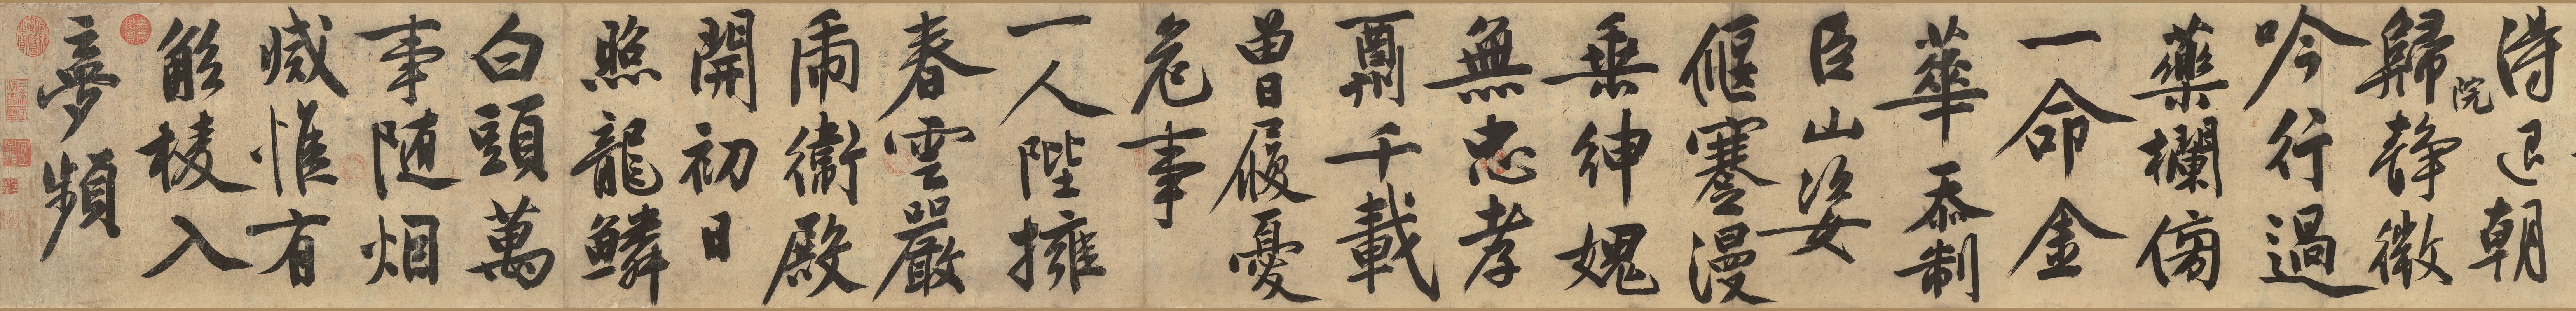 待退朝
歸院靜微
吟行過
藥欄傍
一命金
華忝制
臣山姿
偃蹇漫
垂紳愧
無忠孝
酬千載
曾履憂
危事
一人陛擁
春雲嚴
虎衛殿
開初日
照龍鱗
白頭萬
事随烟
滅惟有
觚棱入
夢頻